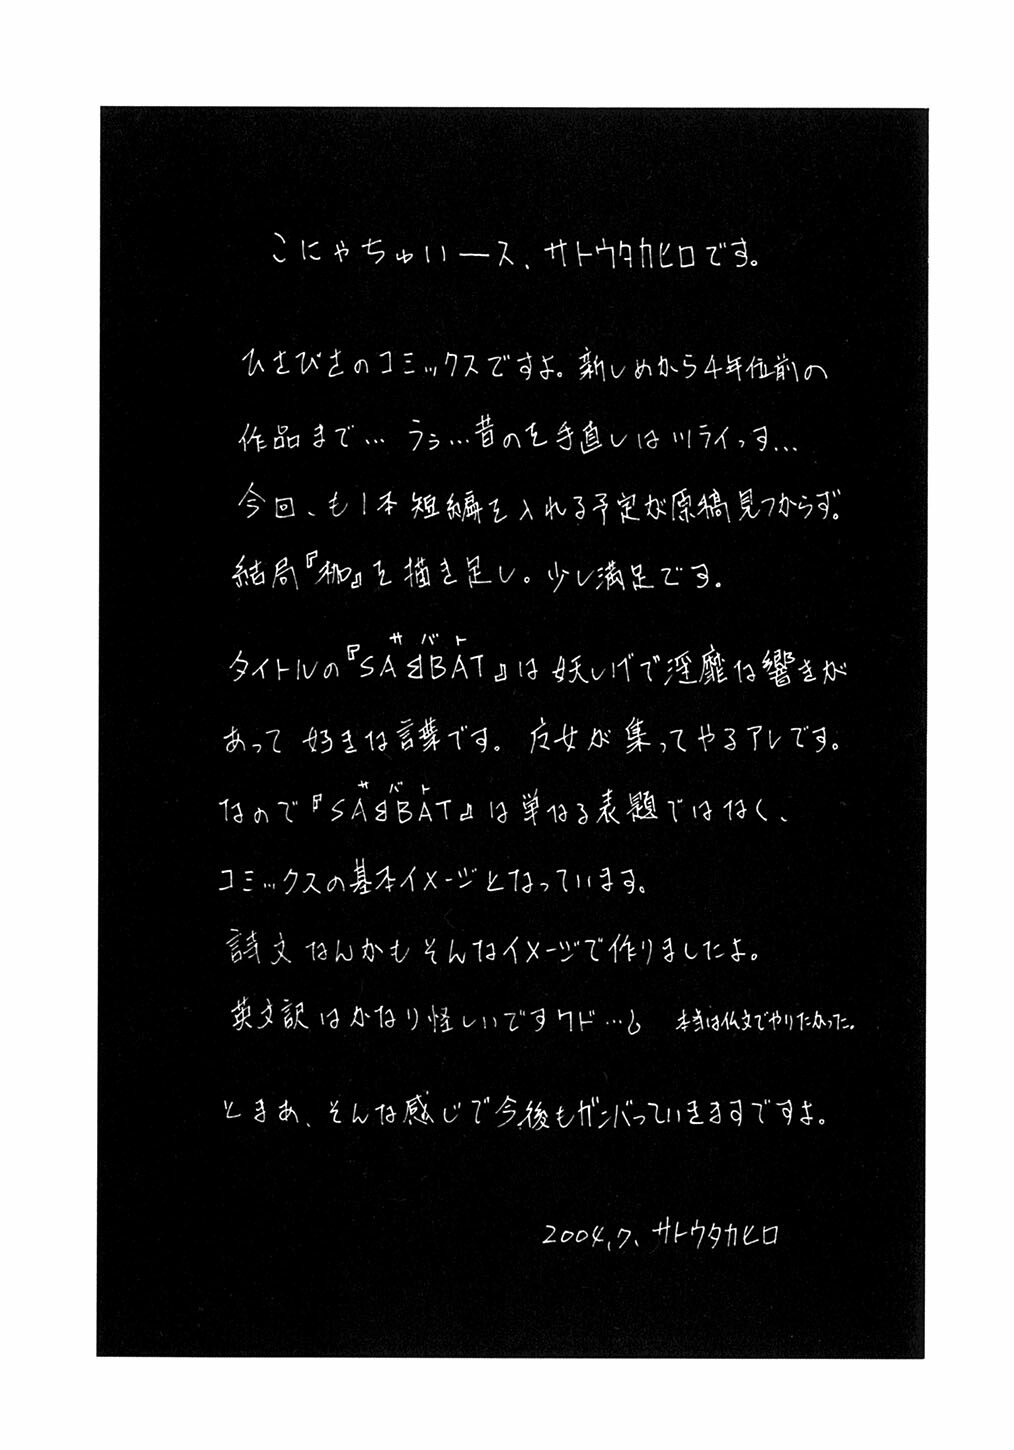 こにゃちゅいーース、サトウタカヒロです。
ひさびさのコミックスですよ。新しめから4年位前の
作品まで… うぅ…昔のを手直しはツライっす…
今回、も1本短編を入れる予定が原稿見つからず。
結局『枷』を描き足し。少し満足です。
サバト
タイトルの『SABBAT』は妖しげで淫靡な響きが
あって好きな言葉です。魔女が集ってやるアレです。
サバト
なので『SABBAT』は単なる表題ではなく、
コミックスの基本イメージとなっています。
詩文なんかもそんなイメージで作りましたよ。
英文訳はかなり怪しいですケド…。 本当は仏文でやりたかった。
とまあ、そんな感じで今後もガンバっていきますですよ。
2004,7、サトウタカヒロ